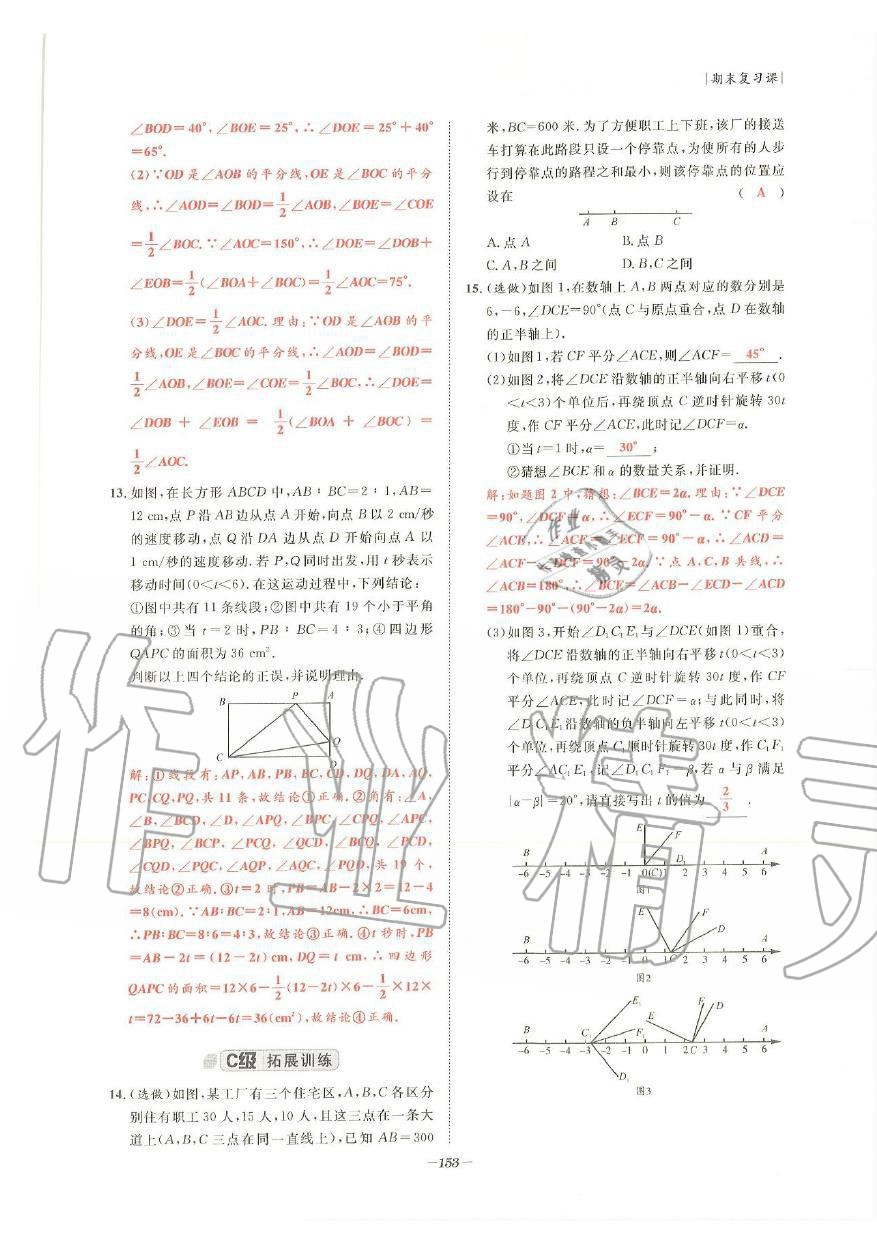 |期末复习课|
∠BOD=40°,∠BOE=25°,∴∠DOE=25°+40°
=65°.
(2)∵OD是∠AOB的平分线,OE是∠BOC的平分
线,∴∠AOD=∠BOD=1/2∠AOB,∠BOE=∠COE
=1/2∠BOC.∵∠AOC=150°,∴∠DOE=∠DOB+
∠EOB=1/2(∠BOA+∠BOC)=1/2∠AOC=75°.
(3)∠DOE=1/2∠AOC.理由:∵OD是∠AOB的平
分线,OE是∠BOC的平分线,∴∠AOD=∠BOD=
1/2∠AOB,∠BOE=∠COE=1/2∠BOC,∴∠DOE=
∠DOB + ∠EOB = 1/2(∠BOA + ∠BOC) =
1/2∠AOC.
13.如图,在长方形ABCD中,AB∶BC=2∶1,AB=
12 cm,点P沿AB边从点A开始,向点B以2 cm/秒
的速度移动,点Q沿DA边从点D开始向点A以
1 cm/秒的速度移动.若P,Q同时出发,用t秒表示
移动时间(0<t<6).在这运动过程中,下列结论:
①图中共有11条线段;②图中共有19个小于平角
的角;③当t=2时,PB∶BC=4∶3;④四边形
QAPC的面积为36 cm².
判断以上四个结论的正误,并说明理由.
B P A
Q
C D
解:①线段有:AP,AB,PB,BC,CD,DQ,DA,AQ,
PC,CQ,PQ,共11条,故结论①正确.②角有:∠A,
∠B,∠BCD,∠D,∠APQ,∠BPC,∠CPQ,∠APC,
∠BPQ,∠BCP,∠PCQ,∠QCD,∠BCQ,∠PCD,
∠CQD,∠PQC,∠AQP,∠AQC,∠PQD,共19个,
故结论②正确.③t=2时,PB=AB-2×2=12-4
=8(cm).∵AB∶BC=2∶1,AB=12cm,∴BC=6cm,
∴PB∶BC=8∶6=4∶3,故结论③正确.④t秒时,PB
=AB-2t=(12-2t)cm,DQ=t cm,∴四边形
QAPC的面积=12×6-1/2(12-2t)×6-1/2×12×
t=72-36+6t-6t=36(cm²),故结论④正确.
C级 拓展训练
14.(选做)如图,某工厂有三个住宅区,A,B,C各区分
别住有职工30人,15人,10人,且这三点在一条大
道上(A,B,C三点在同一直线上),已知AB=300
米,BC=600米.为了方便职工上下班,该厂的接送
车打算在此路段只设一个停靠点,为使所有的人步
行到停靠点的路程之和最小,则该停靠点的位置应
设在 ( A )
A B C
A.点A B.点B
C.A,B之间 D.B,C之间
15.(选做)如图1,在数轴上A,B两点对应的数分别是
6,-6,∠DCE=90°(点C与原点重合,点D在数轴
的正半轴上).
(1)如图1,若CF平分∠ACE,则∠ACF= 45° .
(2)如图2,将∠DCE沿数轴的正半轴向右平移t(0
<t<3)个单位后,再绕顶点C逆时针旋转30t
度,作CF平分∠ACE,此时记∠DCF=α.
①当t=1时,α= 30° ;
②猜想∠BCE和α的数量关系,并证明.
解:如题图2中,猜想:∠BCE=2α.理由:∵∠DCE
=90°,∠DCF=α,∴∠ECF=90°-α.∵CF平分
∠ACE,∴∠ACF=∠ECF=90°-α,∴∠ACD=
∠ACF-∠DCF=90°-2α.∵点A,C,B共线,∴
∠ACB=180°,∴∠BCE=∠ACB-∠ECD-∠ACD
=180°-90°-(90°-2α)=2α.
(3)如图3,开始∠D₁C₁E₁与∠DCE(如图1)重合,
将∠DCE沿数轴的正半轴向右平移t(0<t<3)
个单位,再绕顶点C逆时针旋转30t度,作CF
平分∠ACE,此时记∠DCF=α;与此同时,将
∠D₁C₁E₁沿数轴的负半轴向左平移t(0<t<3)
个单位,再绕顶点C₁顺时针旋转30t度,作C₁F₁
平分∠AC₁E₁,记∠D₁C₁F₁=β,若α与β满足
|α-β|=20°,请直接写出t的值为 2/3 .
E F
B D A
-6 -5 -4 -3 -2 -1 0(C)1 2 3 4 5 6
图1
E F
D
B A
-6 -5 -4 -3 -2 -1 0 1 2 3 4 5 6
图2
E₁ E E D
B C₁ F₁ A
-6 -5 -4 -3 -2 -1 0 1 2C 3 4 5 6
D₁
图3
-153-
作业精灵